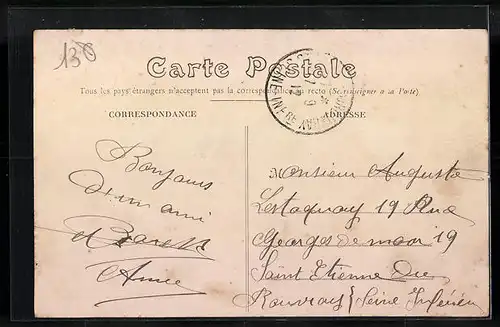 130
Carte Postale
Tous les pays étrangers n'acceptent pas la correspondance au recto (Se renseigner à la Poste)
CORRESPONDANCE
ADRESSE
Bonjours
d'un ami
Monsieur Auguste
Lestaquay 19 Rue
Georges de mоor 19
Saint Etienne Du
Rouvray Seine Inférieu